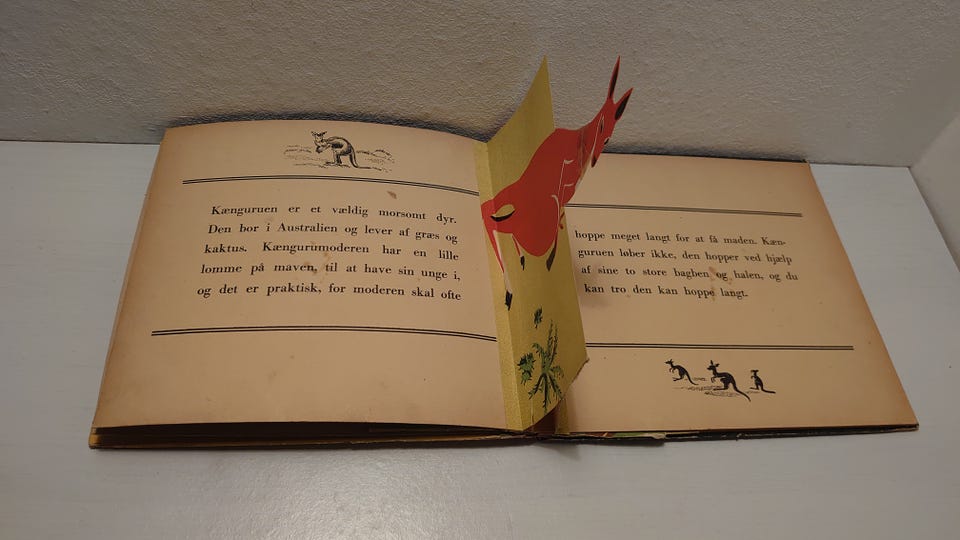 Kænguruen er et vældig morsomt dyr.
Den bor i Australien og lever af græs og
kaktus. Kængurumoderen har en lille
lomme på maven, til at have sin unge i,
og det er praktisk, for moderen skal ofte
hoppe meget langt for at få maden. Kæn-
guruen løber ikke, den hopper ved hjælp
af sine to store bagben og halen, og du
kan tro den kan hoppe langt.